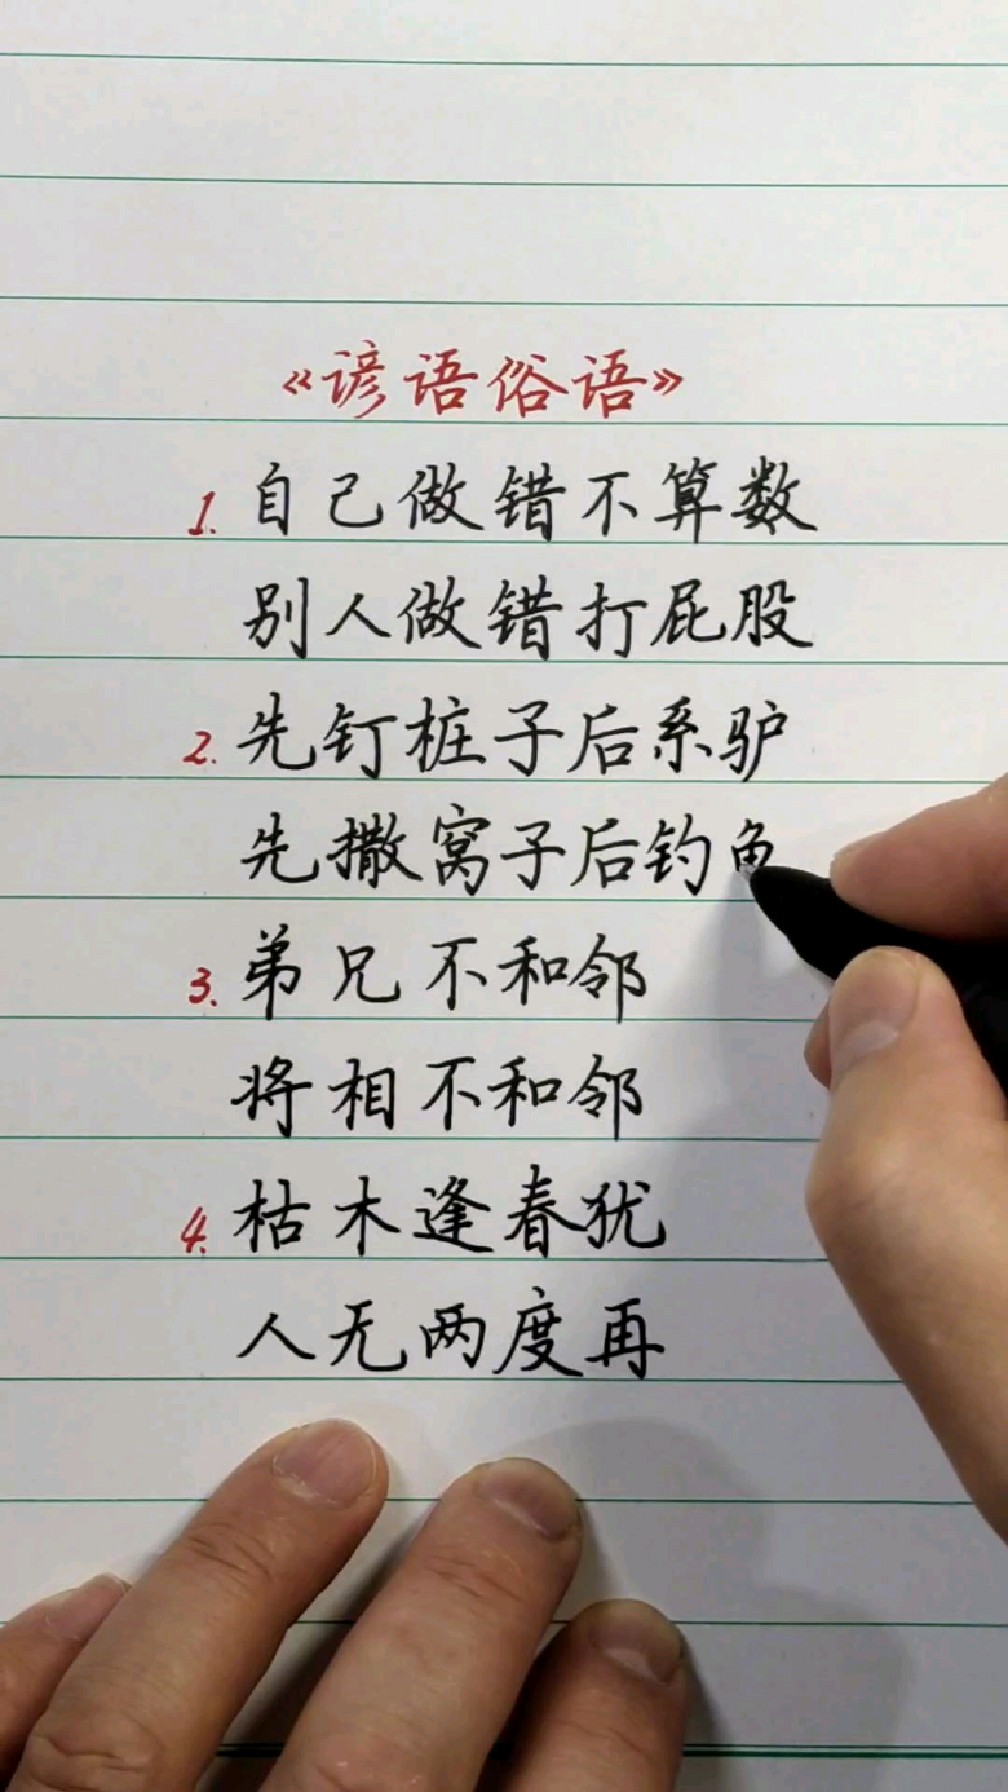 《谚语俗语》
1. 自己做错不算数
别人做错打屁股
2. 先钉桩子后系驴
先撒窝子后钓鱼
3. 弟兄不和邻
将相不和邻
4. 枯木逢春犹
人无两度再